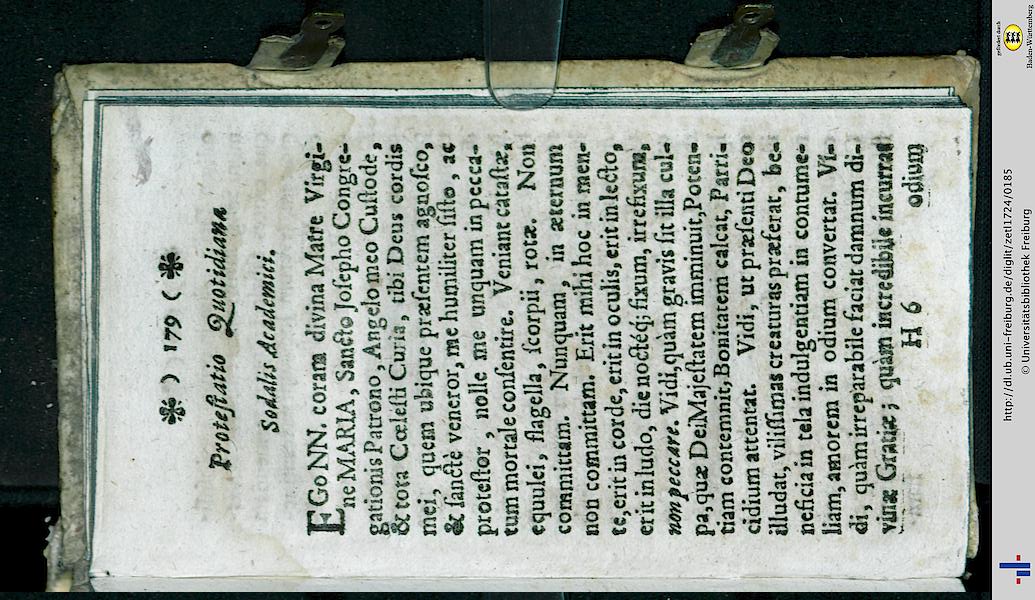 ❋ ) 179 ( ❋
Protestatio Quotidiana
Sodalis Academici.
EGo NN. coram divina Matre Virgi-
ne MARIA, Sancto Josepho Congre-
gationis Patrono, Angelo meo Custode,
& tota Cœlesti Curia, tibi Deus cordis
mei, quem ubique præsentem agnosco,
& sanctè veneror, me humiliter sisto, ac
protestor, nolle me unquam in pecca-
tum mortale consentire. Veniant catastæ,
equulei, flagella, scorpii, rotæ. Non
committam. Nunquam, in æternum
non committam. Erit mihi hoc in men-
te, erit in corde, erit in oculis, erit in lecto,
erit in ludo, die noctéq; fixum, irrefixum,
non peccare. Vidi, quàm gravis sit illa cul-
pa, quæ Dei Majestatem imminuit, Poten-
tiam contemnit, Bonitatem calcat, Parri-
cidium attentat. Vidi, ut præsenti Deo
illudat, vilissimas creaturas præferat, be-
neficia in tela indulgentiam in contume-
liam, amorem in odium convertat. Vi-
di, quàm irreparabile faciat damnum di-
vinæ Gratiæ; quàm incredibile incurrat
H 6 odium
gefördert durch
Baden-Württemberg
http://dl.ub.uni-freiburg.de/diglit/zetl1724/0185
© Universitätsbibliothek Freiburg